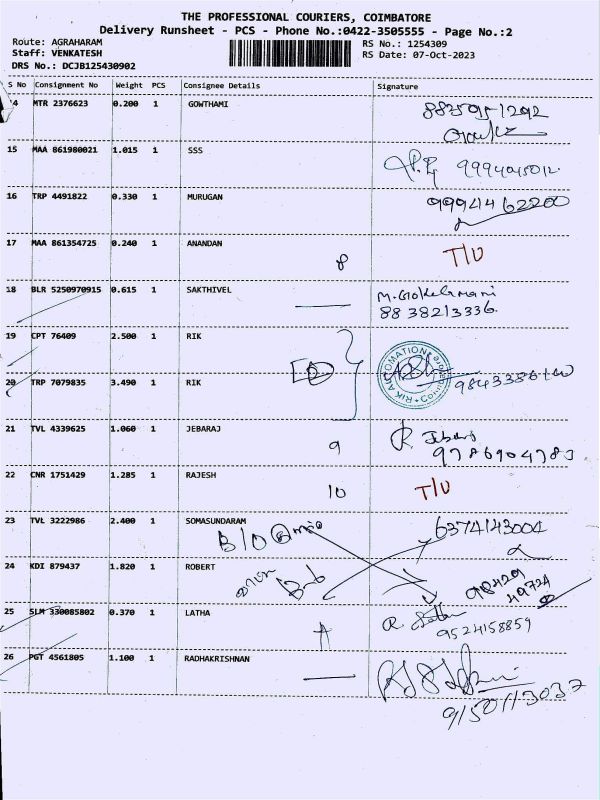 THE PROFESSIONAL COURIERS, COIMBATORE
Delivery Runsheet - PCS - Phone No.:0422-3505555 - Page No.:2
Route: AGRAHARAM
Staff: VENKATESH
DRS No.: DCJB125430902
RS No.: 1254309
RS Date: 07-Oct-2023
S No Consignment No Weight PCS Consignee Details Signature
14 MTR 2376623 0.200 1 GOWTHAMI
15 MAA 861980021 1.015 1 SSS
16 TRP 4491822 0.330 1 MURUGAN
9994462200
17 MAA 861354725 0.240 1 ANANDAN
8 T/U
18 BLR 5250970915 0.615 1 SAKTHIVEL
8838213336
19 CPT 76409 2.500 1 RIK
RIK AUTOMATION
20 TRP 7079835 3.490 1 RIK
21 TVL 4339625 1.060 1 JEBARAJ
9 9786904783
22 CNR 1751429 1.285 1 RAJESH
10 T/U
23 TVL 3222986 2.400 1 SOMASUNDARAM
B/O 6374143004
24 KDI 879437 1.820 1 ROBERT
98429
49724
25 SLM 330085802 0.370 1 LATHA
9524158859
26 PGT 4561805 1.100 1 RADHAKRISHNAN
9150113037